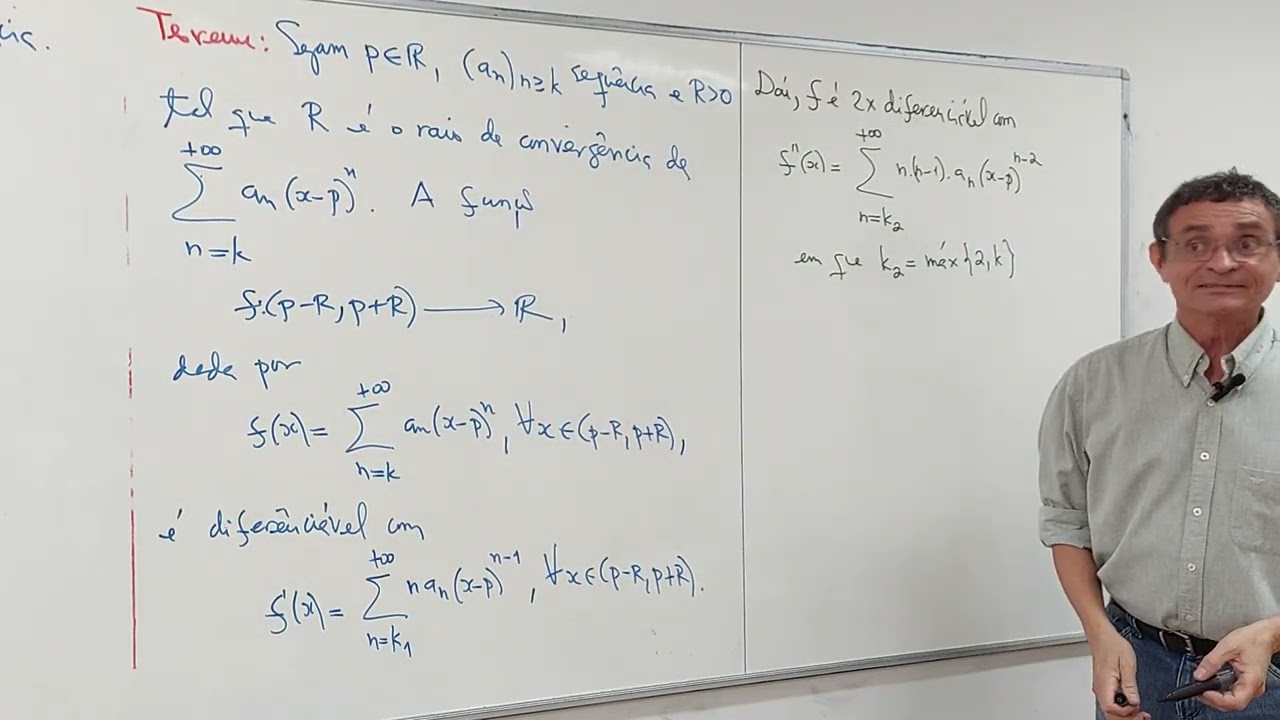 cia.
Teorema: Sejam p∈ℝ, (an)n≥k sequência e R>0
tal que R é o raio de convergência de
+∞
∑ an(x-p)^n. A função
n=k
f:(p-R,p+R)⟶ℝ,
dada por
+∞
f(x)= ∑ an(x-p)^n, ∀x∈(p-R,p+R),
n=k
é diferênciável com
+∞
f'(x)= ∑ n an(x-p)^n-1, ∀x∈(p-R,p+R).
n=k1
Daí, f é 2x diferenciável com
+∞
f''(x)= ∑ n.(n-1).an(x-p)^n-2
n=k2
em que k2=máx{2,k}